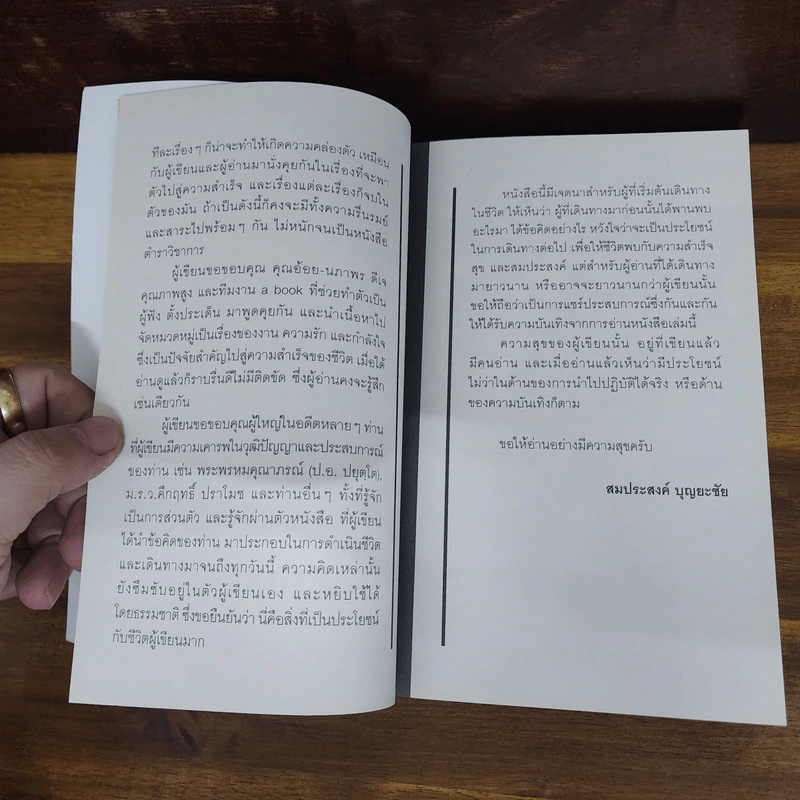 ทีละเรื่องๆ ก็น่าจะทำให้เกิดความคล่องตัว เหมือน
กับผู้เขียนและผู้อ่านมานั่งคุยกันในเรื่องที่จะพา
ตัวไปสู่ความสำเร็จ และเรื่องแต่ละเรื่องก็จบใน
ตัวของมัน ถ้าเป็นดังนี้ก็คงจะมีทั้งความรื่นรมย์
และสาระไปพร้อมๆ กัน ไม่หนักจนเป็นหนังสือ
ตำราวิชาการ
ผู้เขียนขอขอบคุณ คุณอ้อย-นภาพร ดีเจ
คุณภาพสูง และทีมงาน a book ที่ช่วยทำตัวเป็น
ผู้ฟัง ตั้งประเด็น มาพูดคุยกัน และนำเนื้อหาไป
จัดหมวดหมู่เป็นเรื่องของงาน ความรัก และกำลังใจ
ซึ่งเป็นปัจจัยสำคัญไปสู่ความสำเร็จของชีวิต เมื่อได้
อ่านดูแล้วก็ราบรื่นดีไม่มีติดขัด ซึ่งผู้อ่านคงจะรู้สึก
เช่นเดียวกัน
ผู้เขียนขอขอบคุณผู้ใหญ่ในอดีตหลายๆ ท่าน
ที่ผู้เขียนมีความเคารพในวุฒิปัญญาและประสบการณ์
ของท่าน เช่น พระพรหมคุณาภรณ์ (ป.อ. ปยุตฺโต),
ม.ร.ว.คึกฤทธิ์ ปราโมช และท่านอื่นๆ ทั้งที่รู้จัก
เป็นการส่วนตัว และรู้จักผ่านตัวหนังสือ ที่ผู้เขียน
ได้นำข้อคิดของท่าน มาประกอบในการดำเนินชีวิต
และเดินทางมาจนถึงทุกวันนี้ ความคิดเหล่านั้น
ยังซึมซับอยู่ในตัวผู้เขียนเอง และหยิบใช้ได้
โดยธรรมชาติ ซึ่งขอยืนยันว่า นี่คือสิ่งที่เป็นประโยชน์
กับชีวิตผู้เขียนมาก
หนังสือนี้มีเจตนาสำหรับผู้ที่เริ่มต้นเดินทาง
ในชีวิต ให้เห็นว่า ผู้ที่เดินทางมาก่อนนั้นได้พานพบ
อะไรมา ได้ข้อคิดอย่างไร หวังใจว่าจะเป็นประโยชน์
ในการเดินทางต่อไป เพื่อให้ชีวิตพบกับความสำเร็จ
สุข และสมประสงค์ แต่สำหรับผู้อ่านที่ได้เดินทาง
มายาวนาน หรืออาจจะยาวนานกว่าผู้เขียนนั้น
ขอให้ถือว่าเป็นการแชร์ประสบการณ์ซึ่งกันและกัน
ให้ได้รับความบันเทิงจากการอ่านหนังสือเล่มนี้
ความสุขของผู้เขียนนั้น อยู่ที่เขียนแล้ว
มีคนอ่าน และเมื่ออ่านแล้วเห็นว่ามีประโยชน์
ไม่ว่าในด้านของการนำไปปฏิบัติได้จริง หรือด้าน
ของความบันเทิงก็ตาม
ขอให้อ่านอย่างมีความสุขครับ
สมประสงค์ บุญยะชัย